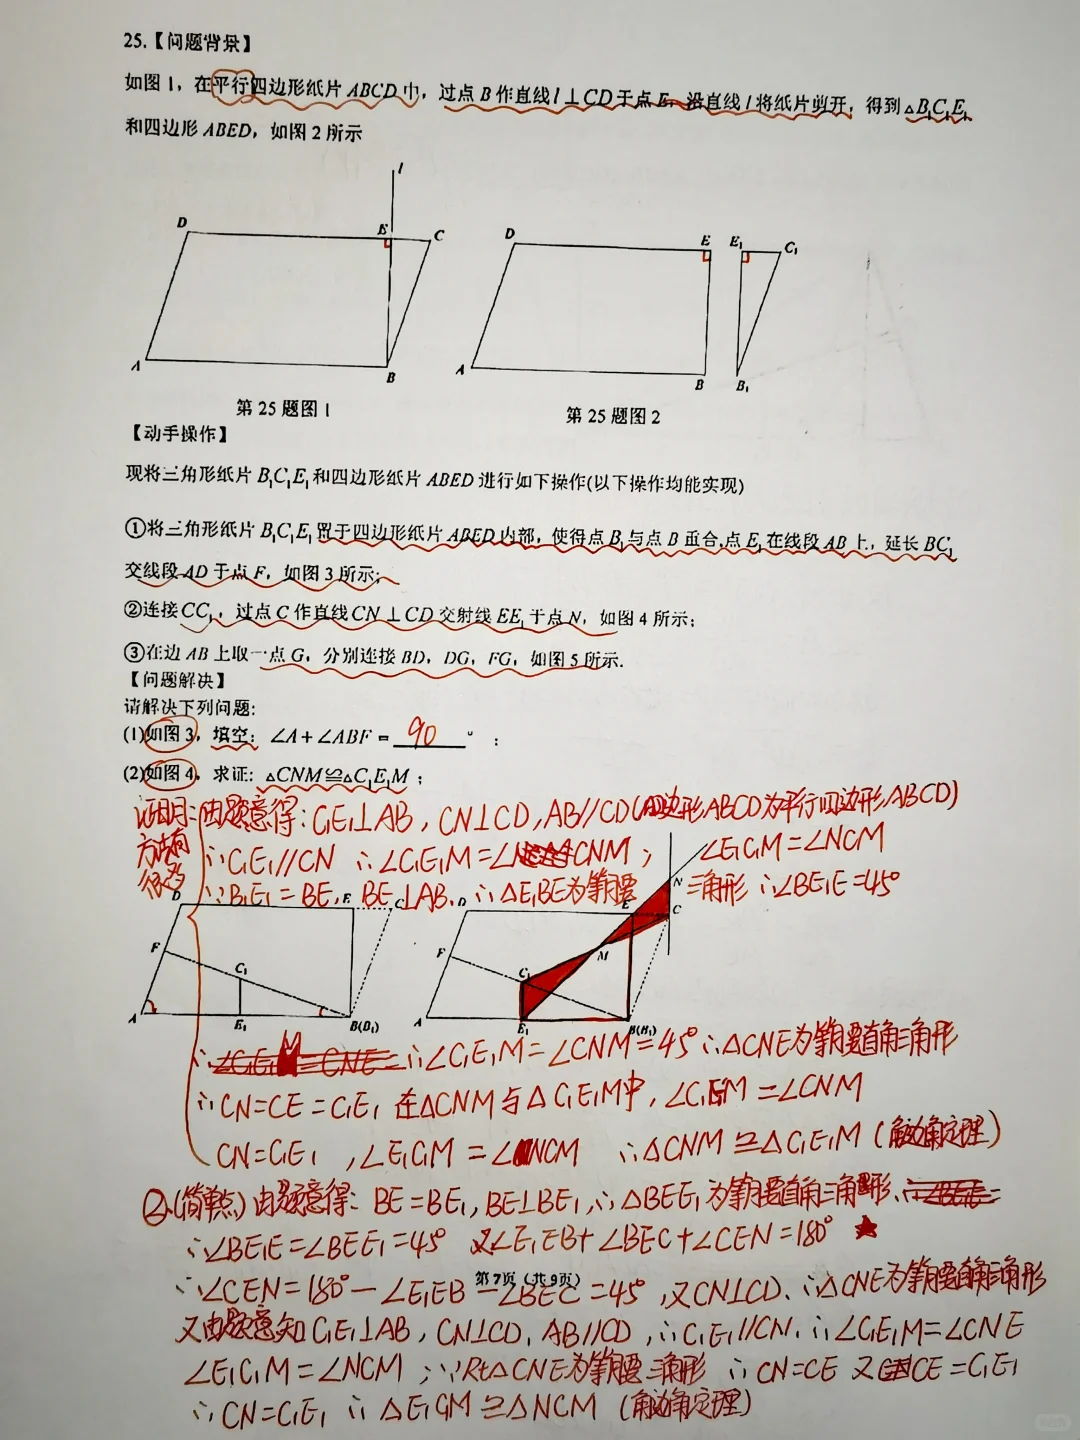 25.【问题背景】
如图1，在平行四边形纸片ABCD中，过点B作直线l⊥CD于点E，沿直线l将纸片剪开，得到△B₁C₁E₁
和四边形ABED，如图2所示
l
D E C
D E E₁ C₁
A B
A B B₁
第25题图1
第25题图2
【动手操作】
现将三角形纸片B₁C₁E₁和四边形纸片ABED进行如下操作(以下操作均能实现)
①将三角形纸片B₁C₁E₁置于四边形纸片ABED内部，使得点B₁与点B重合，点E₁在线段AB上，延长BC₁
交线段AD于点F，如图3所示;
②连接CC₁，过点C作直线CN⊥CD交射线EE₁于点N，如图4所示;
③在边AB上取一点G，分别连接BD，DG，FG，如图5所示.
【问题解决】
请解决下列问题:
(1)如图3，填空: ∠A+∠ABF=90°;
(2)如图4，求证: △CNM≌△C₁E₁M;
证明: 由题意得: C₁E₁⊥AB, CN⊥CD, AB//CD(四边形ABCD为平行四边形ABCD)
方法有
很多
∴C₁E₁//CN ∴∠C₁E₁M=∠CNM; ∠E₁C₁M=∠NCM
∵B₁E₁=BE, BE⊥AB, ∴△E₁BE为等腰三角形 ∴∠BE₁E=45°
D E C
D E N C
F C₁
F C₁ M
A E₁ B(B₁)
A E₁ B(B₁)
∴∠C₁E₁M=∠CNM=45° ∴△CNE为等腰直角三角形
∴CN=CE=C₁E₁ 在△CNM与△C₁E₁M中, ∠C₁E₁M=∠CNM
CN=C₁E₁, ∠E₁C₁M=∠NCM ∴△CNM≌△C₁E₁M(角边角定理)
②(简单点) 由题意得: BE=BE₁, BE⊥BE₁, ∴△BEE₁为等腰直角三角形
∴∠BE₁E=∠BEE₁=45° 又∠E₁EB+∠BEC+∠CEN=180° ★
∴∠CEN=180°-∠E₁EB-∠BEC=45°, 又CN⊥CD, ∴△CNE为等腰直角三角形
第7页（共9页）
又由题意知C₁E₁⊥AB, CN⊥CD, AB//CD, ∴C₁E₁//CN, ∴∠C₁E₁M=∠CNE
∠E₁C₁M=∠NCM; ∵Rt△CNE为等腰三角形 ∴CN=CE 又CE=C₁E₁
∴CN=C₁E₁ ∴△E₁C₁M≌△NCM (角边角定理)